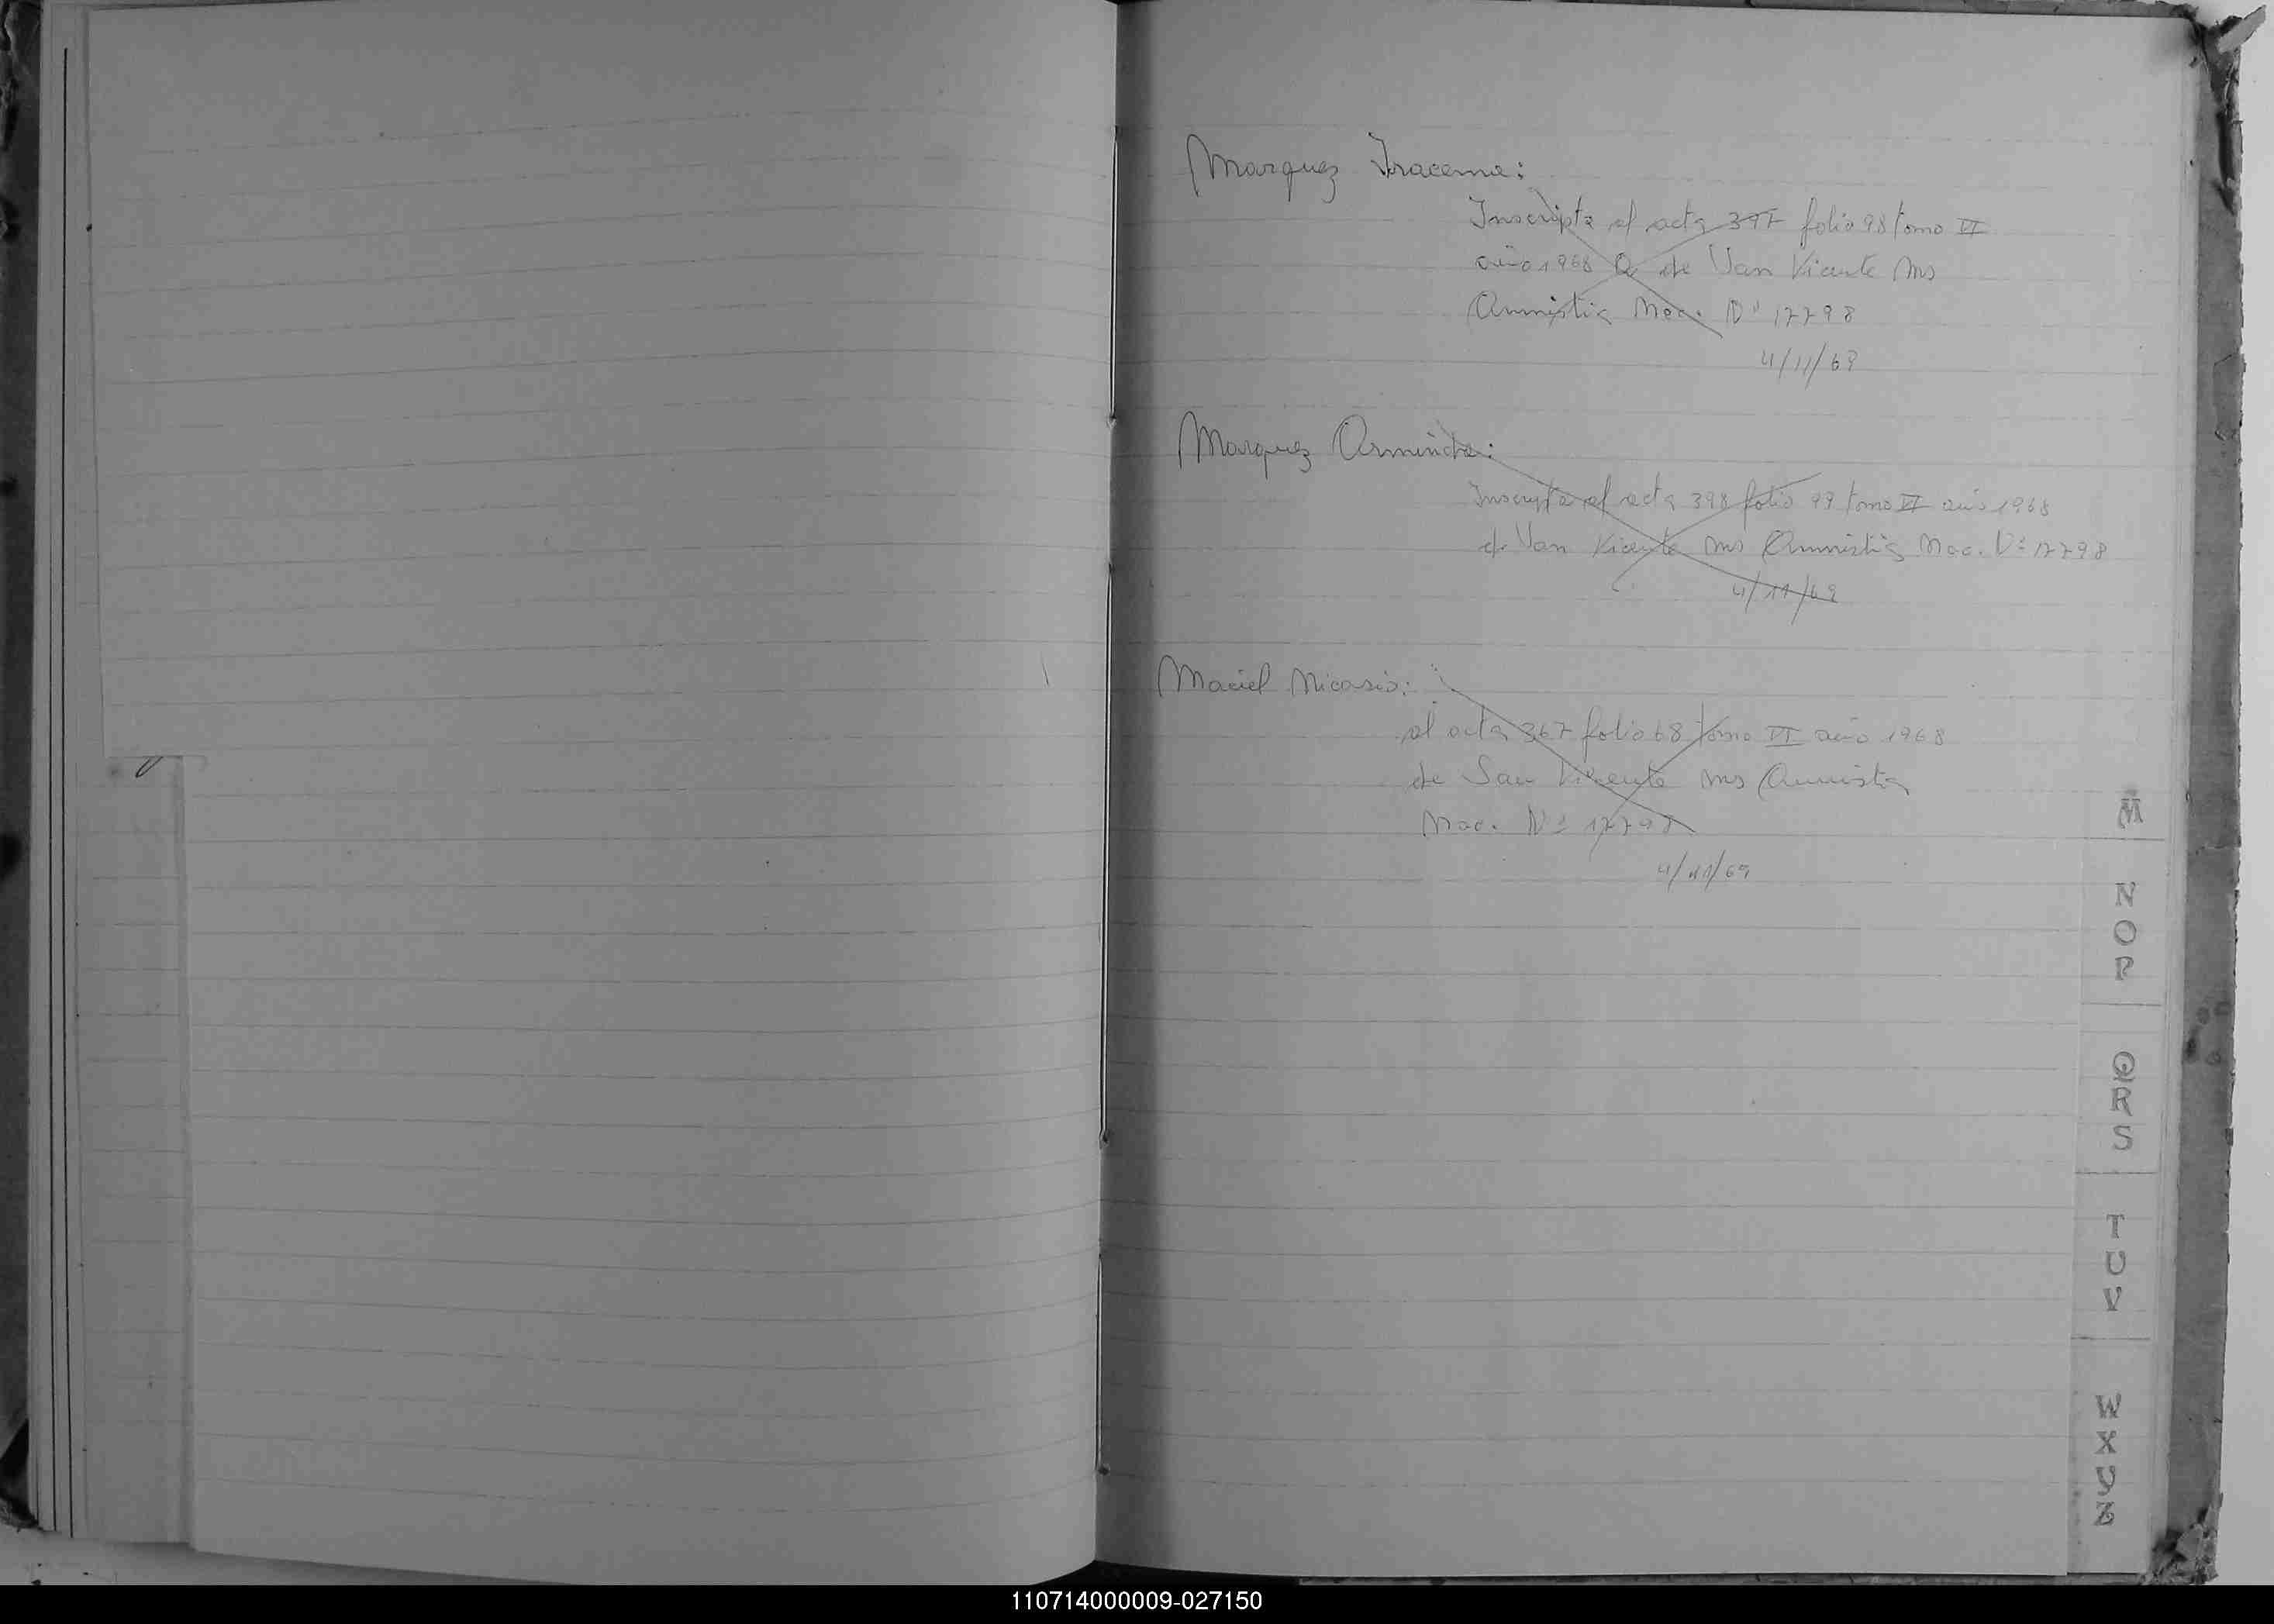 Marquez Iracema:
Inscripta al acta 397 folio 98 tomo VI
año 1968 de San Vicente Ms
Amnistia Nac. Nº 17798
4/11/69
Marquez Arminda:
Inscripta al acta 398 folio 99 tomo VI año 1968
de San Vicente Ms Amnistia Nac. Nº 17798
4/11/69
Maciel Nicasio:
al acta 367 folio 68 tomo VI año 1968
de San Vicente Ms Amnistia
Nac. Nº 17798
4/11/69
M
N
O
P
Q
R
S
T
U
V
W
X
Y
Z
110714000009-027150